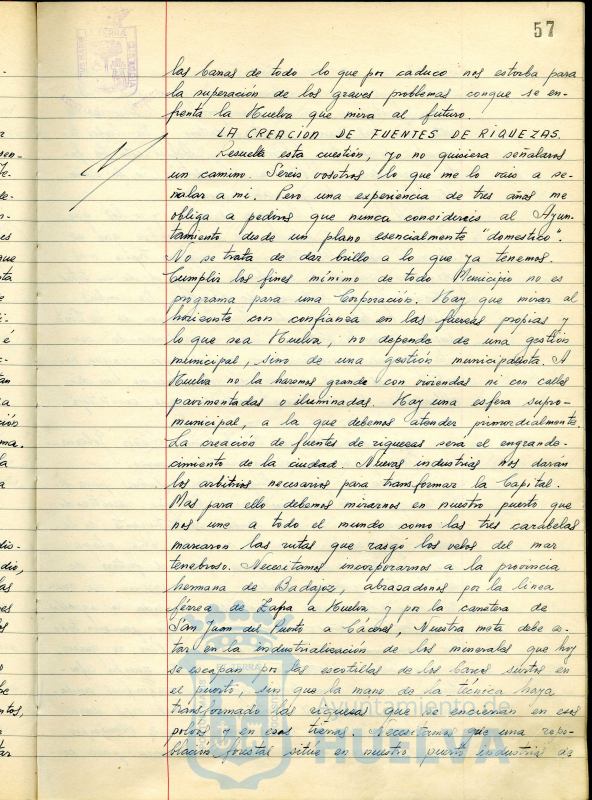 57
las banas de todo lo que por caduco nos estorba para
la superación de los graves problemas conque se en-
frenta la Huelva que mira al futuro.
LA CREACION DE FUENTES DE RIQUEZAS.
Resuelta esta cuestión, yo no quisiera señalaros
un camino. Sereis vosotros lo que me lo vais a se-
ñalar a mi. Pero una experiencia de tres años me
obliga a pediros que nunca considereis al Ayun-
tamiento desde un plano esencialmente "domestico".
No se trata de dar brillo a lo que ya tenemos.
Cumplir los fines mínimo de todo Municipio no es
programa para una Corporación. Hay que mirar al
horizonte con confianza en las fuerzas propias y
lo que sea Huelva, no depende de una gestión
municipal, sino de una gestión municipalista. A
Huelva no la haremos grande con viviendas ni con calles
pavimentadas o iluminadas. Hay una esfera supro-
municipal, a la que debemos atender primordialmente.
La creación de fuentes de riquezas será el engrande-
cimiento de la ciudad. Nuevas industrias nos darán
los arbitrios necesarios para transformar la Capital.
Mas para ello debemos mirarnos en nuestro puerto que
nos une a todo el mundo como las tres carabelas
marcaron las rutas que rasgó los velos del mar
tenebroso. Necesitamos incorporarnos a la provincia
hermana de Badajoz, abrazadonos por la linea
férrea de Zafra a Huelva y por la carretera de
San Juan del Puerto a Cáceres, Nuestra meta debe es-
tar en la industrialización de los minerales que hoy
se escapan por las escotillas de los barcos surtos en
el puerto, sin que la mano de la técnica haya
transformado las riquezas que se encierran en esos
y en esas tierras. Necesitamos que una repo-
blación forestal sitúe en nuestro puerto industrias de
Ayuntamiento de
HUELVA